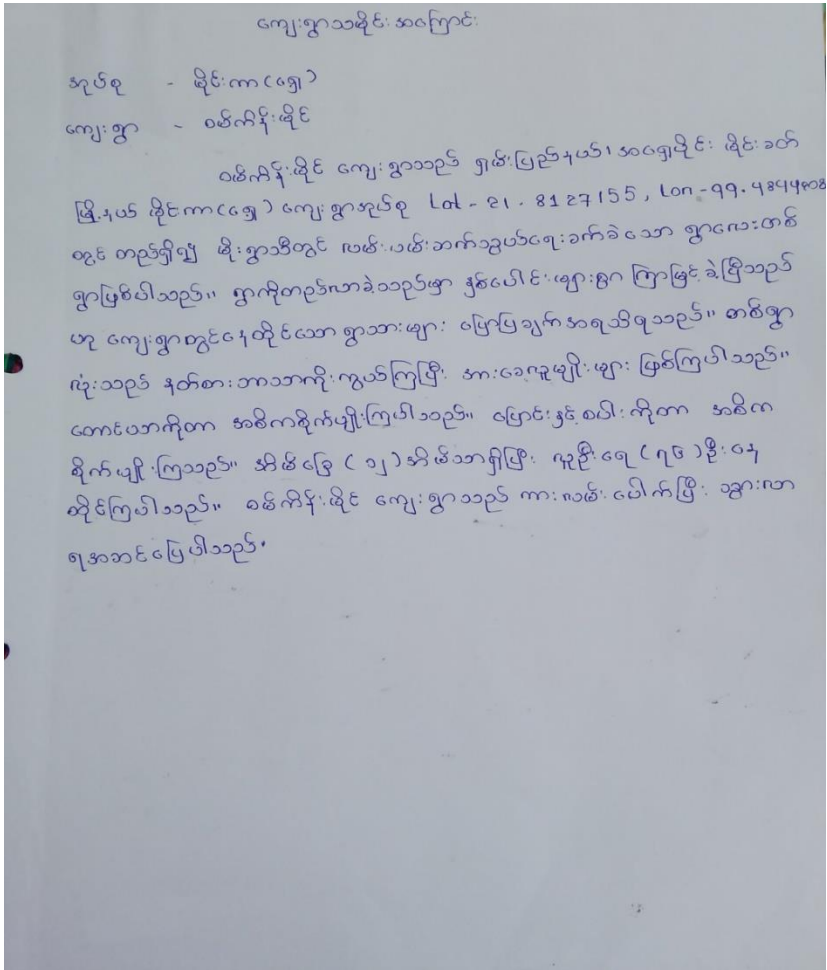 ကျေးရွာသမိုင်းအကြောင်း
အုပ်စု - မိုင်းကာ(ရှေ့)
ကျေးရွာ - ဝမ်ကိန်းမိုင်
ဝမ်ကိန်းမိုင် ကျေးရွာသည် ရှမ်းပြည်နယ်၊ အရှေ့ပိုင်း မိုင်းခတ်
မြို့နယ် မိုင်ကာ(ရှေ့) ကျေးရွာအုပ်စု Lat - 21. 8127155, Lon - 99.4844808
တွင် တည်ရှိ၍ မိုးရွာသီတွင် လမ်းပမ်းဆက်သွယ်ရေးခက်ခဲသော ရွာလေးတစ်
ရွာဖြစ်ပါသည်။ ရွာကိုတည်လာခဲ့သည်မှာ နှစ်ပေါင်းများစွာ ကြာမြင့်ခဲ့ပြီသည်
ဟု ကျေးရွာတွင်နေထိုင်သောရွာသားများ ပြောပြချက်အရသိရသည်။ တစ်ရွာ
လုံးသည် နတ်စားဘာသာကိုးကွယ်ကြပြီး အားခေလူမျိုးများ ဖြစ်ကြပါသည်။
တောင်ယာကိုတာ အဓိကစိုက်ပျိုးကြပါသည်။ ပြောင်းနှင့်စပါးကိုတာ အဓိက
စိုက်ပျိုးကြသည်။ အိမ်ခြေ (၁၂)အိမ်သာရှိပြီး လူဦးရေ (၇၆)ဦးနေ
ထိုင်ကြပါသည်။ ဝမ်ကိန်းမိုင် ကျေးရွာသည် ကားလမ်းပေါက်ပြီး သွားလာ
ရအဆင်ပြေပါသည်.